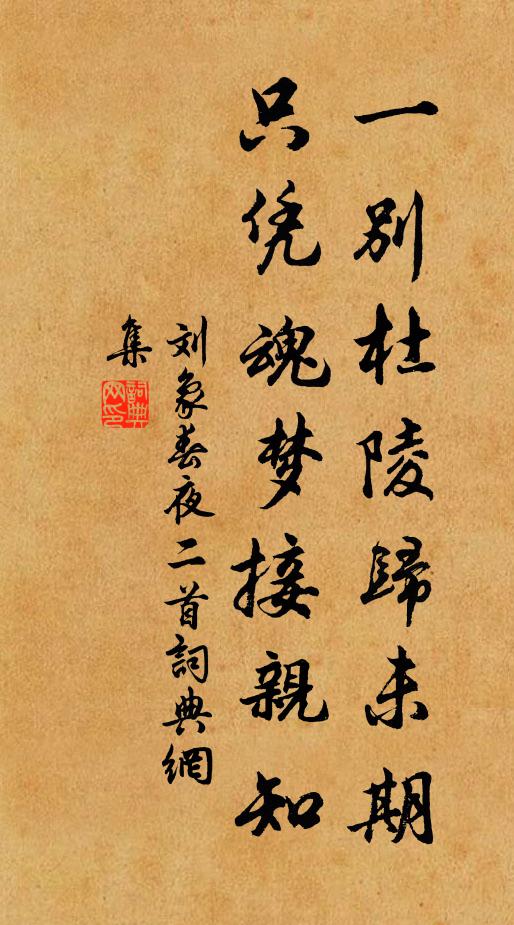 一别杜陵歸未期
只凭魂梦接親知
刘象春夜二首詞典網
集
詞典网印